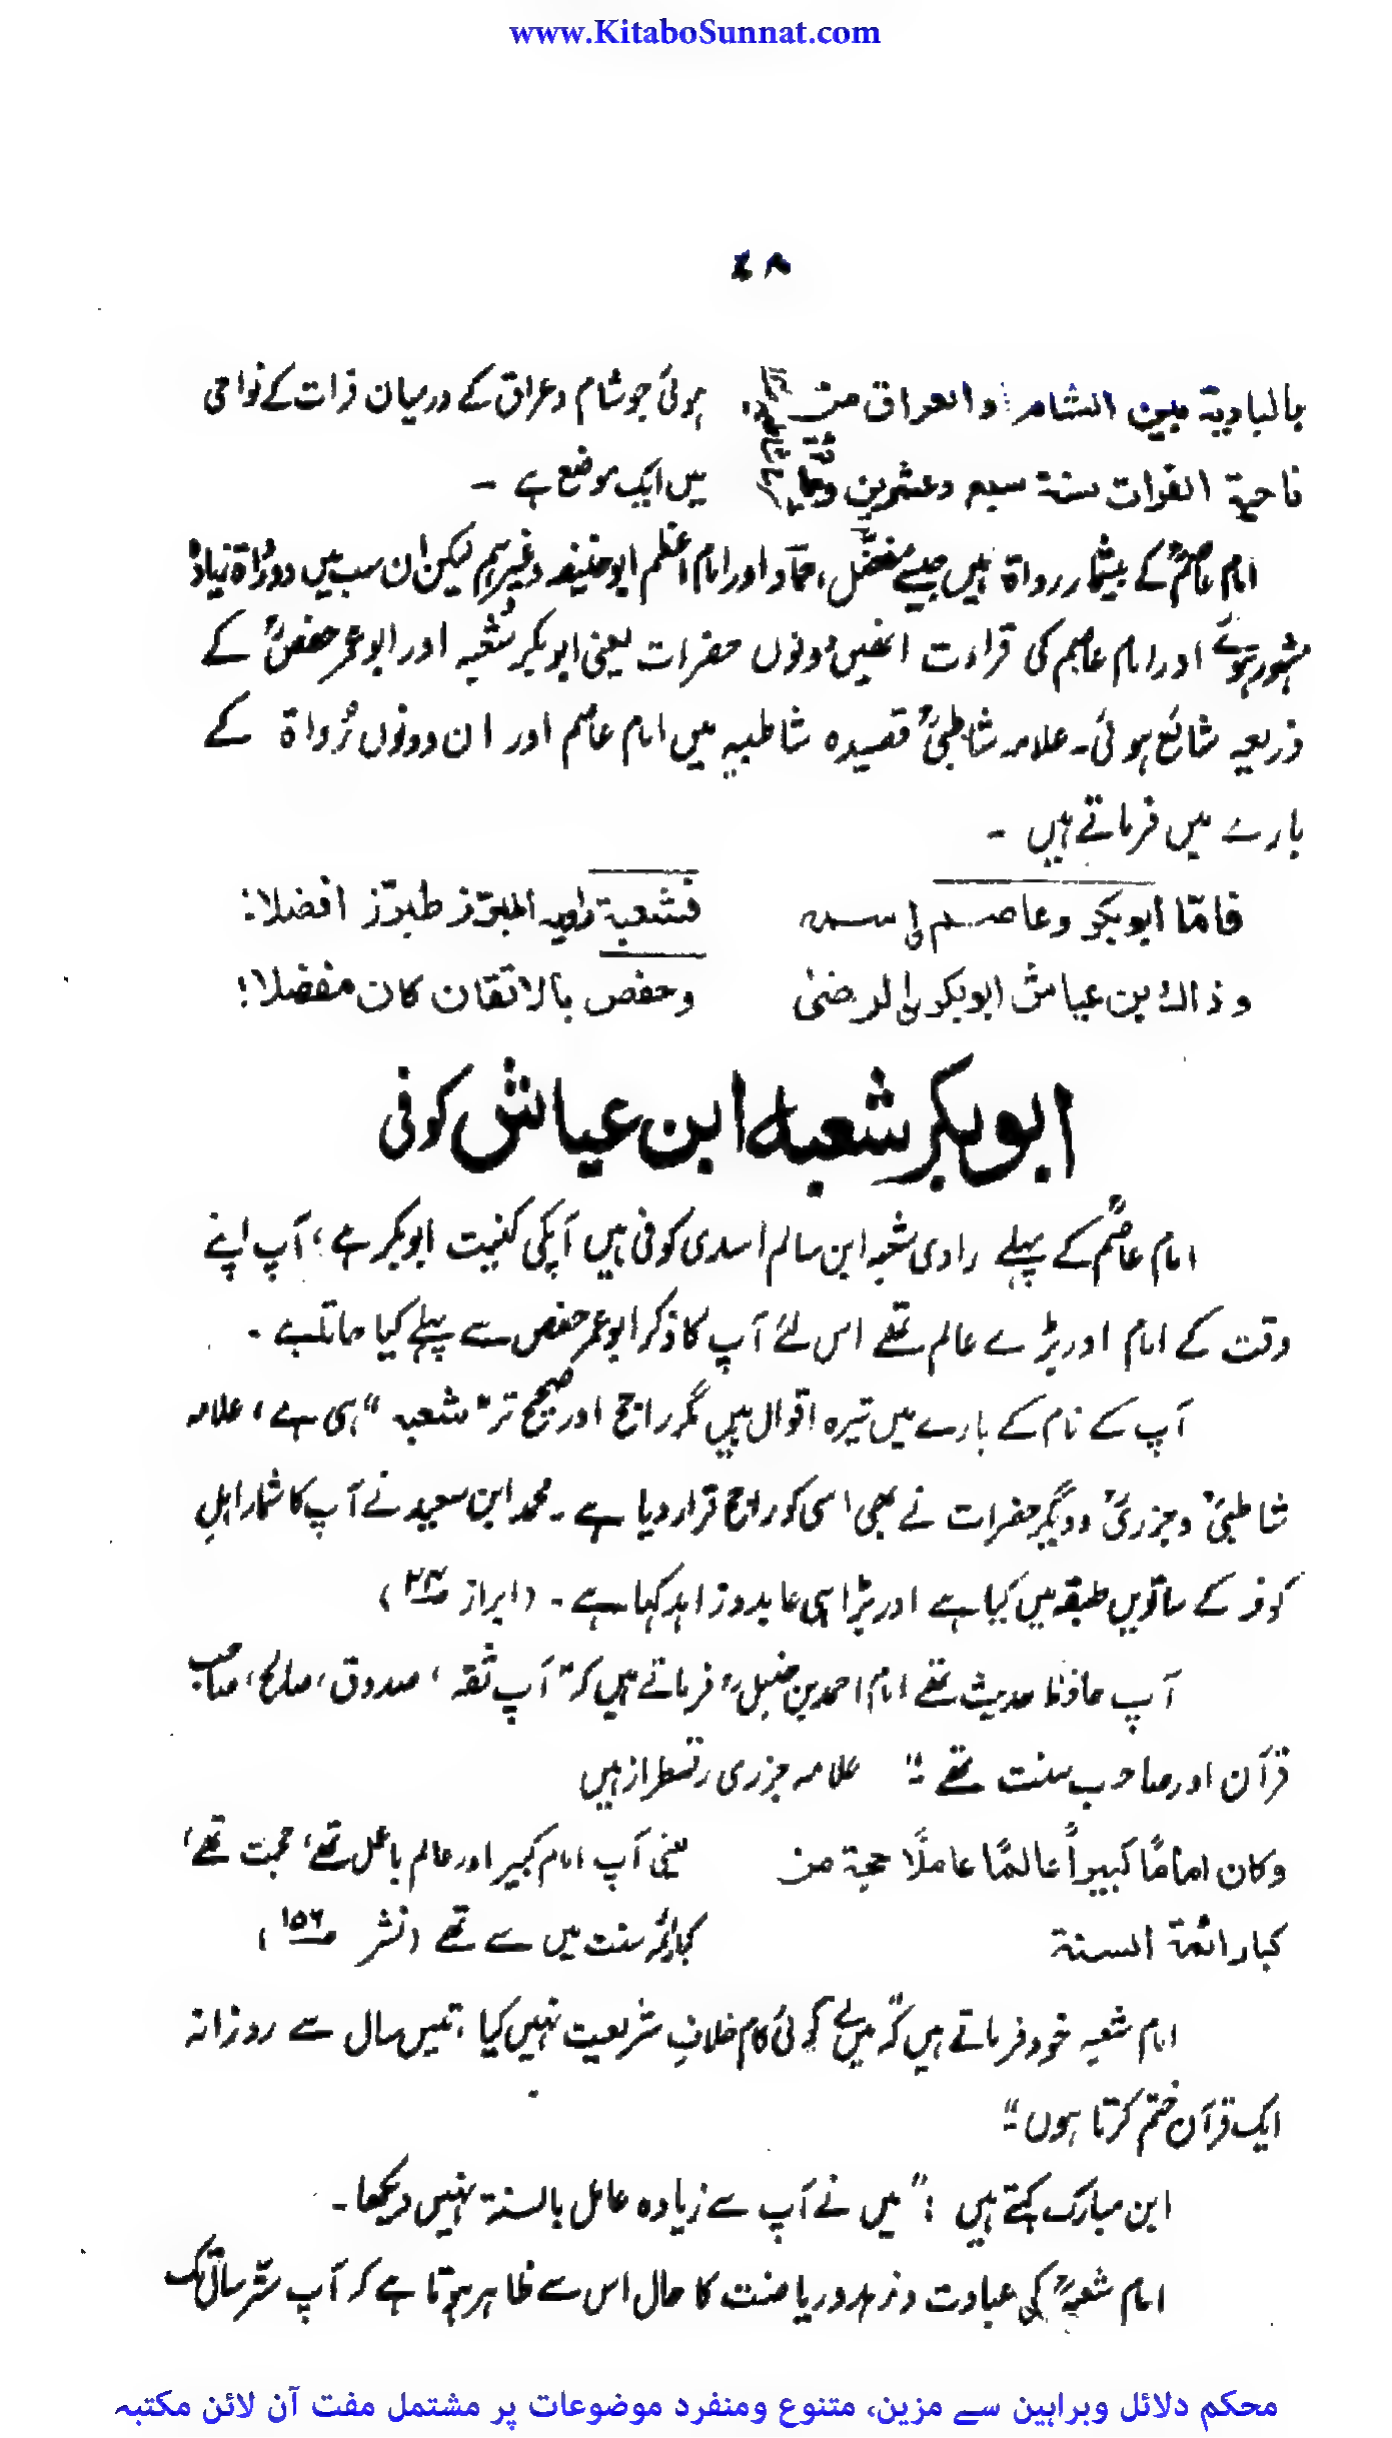 www.KitaboSunnat.com
۴۸
بالبادية بين الشام والعراق من ہوئی جو شام وعراق کے درمیان فرات کے نواحی
ناحية الفرات سنة سبع وعشرين میں ایک موضع ہے ۔
امام عاصمؒ کے بیشمار رواۃ ہیں جیسے مفضل، حماد اور امام اعظم ابوحنیفہ وغیرہم لیکن ان سب میں دو رُواۃ زیادہ
مشہور ہوئے اور امام عاصم کی قراءت انھیں دونوں حضرات یعنی ابوبکر شعبہ اور ابو عمر حفصؒ کے
ذریعہ شائع ہوئی۔ علامہ شاطبیؒ قصیدہ شاطبیہ میں امام عاصم اور ان دونوں رُواۃ کے
بارے میں فرماتے ہیں ۔
فامّا ابوبكر وعاصم اسمه فشعبة راويه المبرّز افضلا:
وذاك بن عياش ابوبكر الرضىٰ وحفص بالاتقان كان مفضلا:
ابوبکر شعبہ ابن عیاش کوفی
امام عاصمؒ کے پہلے راوی شعبہ ابن سالم اسدی کوفی ہیں آپکی کنیت ابوبکر ہے، آپ اپنے
وقت کے امام اور بڑے عالم تھے اس لئے آپ کا ذکر ابو عمر حفص سے پہلے کیا جاتا ہے ۔
آپ کے نام کے بارے میں تیرہ اقوال ہیں مگر راجح اور صحیح تر "شعبہ" ہی ہے، علامہ
شاطبیؒ وجزریؒ ودیگر حضرات نے بھی اسی کو راجح قرار دیا ہے ۔ محمد ابن سعید نے آپ کا شمار اہلِ
کوفہ کے ساتویں طبقہ میں کیا ہے اور بڑا ہی عابد وزاہد کہا ہے ۔ (ابراز ص۲۴)
آپ حافظ حدیث تھے امام احمد بن حنبلؒ فرماتے ہیں کہ "آپ ثقہ، صدوق، صالح، صاحب
قرآن اور صاحب سنت تھے ۔" علامہ جزری رقمطراز ہیں
وكان امامًا كبيراً عالمًا عاملًا حجة من یعنی آپ امام کبیر اور عالم باعمل تھے، حجت تھے،
كبار ائمة السنة کبار ائمہ سنت میں سے تھے (نشر ص۱۵۶)
امام شعبہ خود فرماتے ہیں کہ "میں نے کوئی کام خلافِ شریعت نہیں کیا، تیس سال سے روزانہ
ایک قرآن ختم کرتا ہوں ۔"
ابن مبارک کہتے ہیں : "میں نے آپ سے زیادہ عامل بالسنۃ نہیں دیکھا ۔
امام شعبہؒ کی عبادت وزہد وریاضت کا حال اس سے ظاہر ہوتا ہے کہ آپ ستّر سال تک
محکم دلائل وبراہین سے مزین، متنوع ومنفرد موضوعات پر مشتمل مفت آن لائن مکتبہ